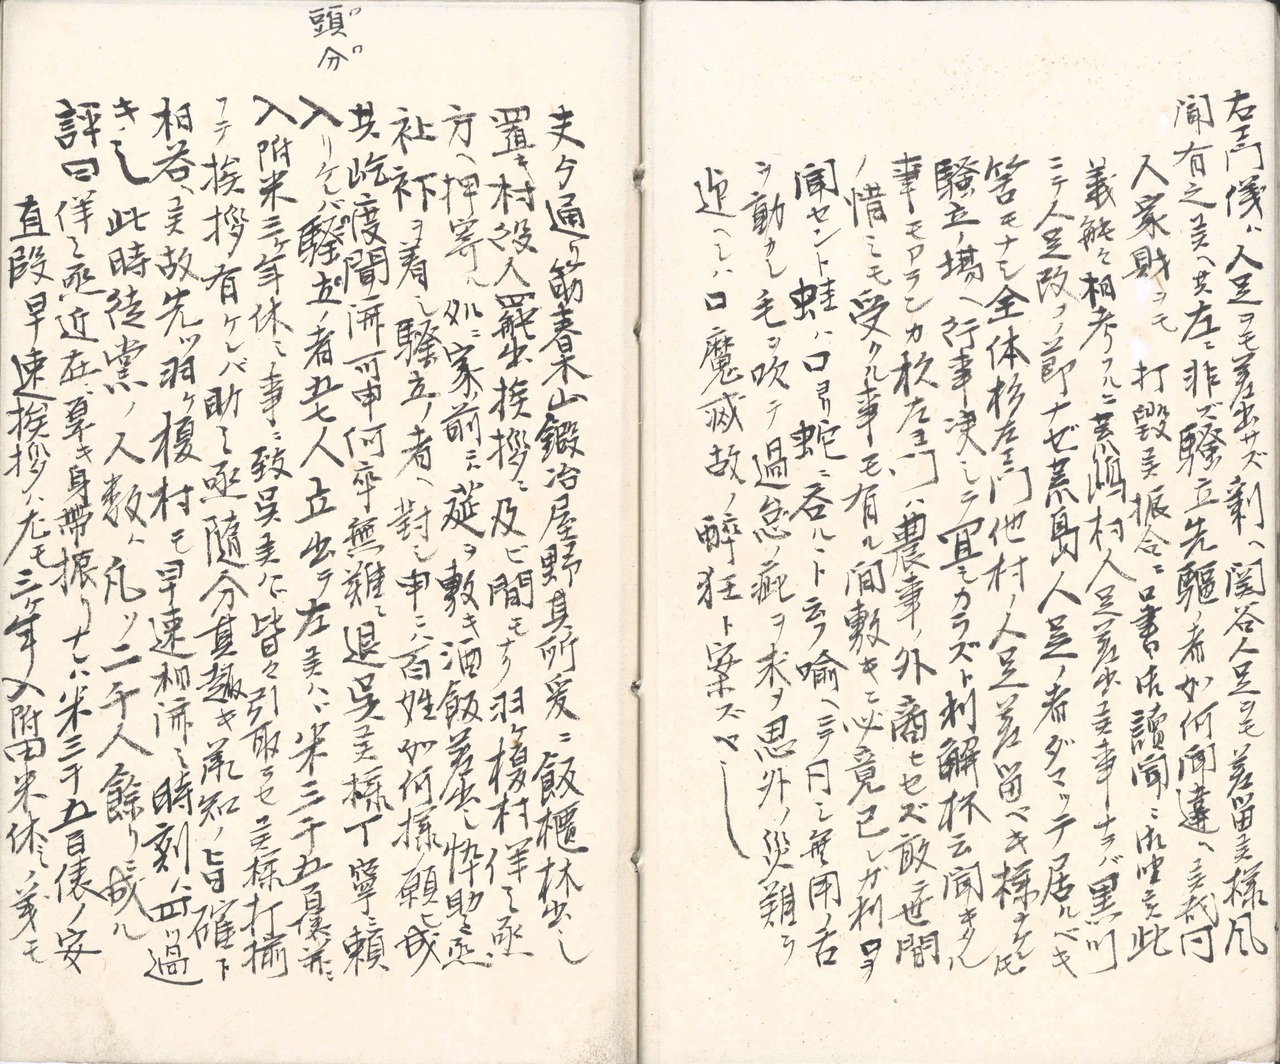 右エ門儀ハ人足ヲモ差出サズ剰ヘ関谷人足ヲモ差留候様風
聞有之候ヘ共左ニ非ズ騒立先驅ノ者如何聞違ヘ候哉同
人家財ヲモ打毀候振合ニ口書御讀聞ニ御座候此
義能々相考フルニ荒嶋村人足差出候事ナラバ黒川
ニテ人足改メノ節ナゼ荒島人足ノ者ダマッテ居ルベキ
筈モナシ全体杉左エ門他村ノ人足差留ベキ様ナケレ共
騒立ノ場ヘ行事決シテ宜シカラズト利解杯云聞キタル
事モアランカ杉左エ門ハ農事ノ外商セセズ故ニ世間
ノ惜ミモ受クル事モ有ル間敷キニ必竟己レガ利口ヲ
聞セント蛙ハ口ヨリ蛇ニ呑ルヽト云フ喩ヘニテ円シ無用ノ舌
ヲ動カシ毛ヲ吹テ過怠ノ疵ヲ求ヲ思外ノ災難ヲ
近ヘシハ口魔滅故ノ酔狂ト案ズベシ
頭分
夫ゟ通リ筋春木山鍛冶屋野其所爰ニ飯櫃杯出シ
置キ村役人罷出挨拶ニ及ビ間モナク羽ケ榎村祥之亟
方ヘ押寄ル処ニ家ノ前ニ莚ヲ敷キ酒飯差出シ忰助之亟
裃ヲ着シ騒立ノ者ヘ對シ申ニハ百姓如何様願ヒ成
共屹度聞済可申何卒無難ニ退呉候様丁寧ニ頼
入リケレバ騒立ノ者五七人立出テ左候ハヾ米三千五百俵並ニ
入附米三ケ年休ミ事ニ致呉候ハヾ皆々引取ラセ候様打揃
フテ挨拶有ケレバ助之亟隨分其趣キ承知ノ旨確ト
相答候故先ツ羽ケ榎村モ早速相済シ時刻ハ四ツ過
キ也此時徒黨ノ人数ハ凡ソ二千人餘リ成ル
評曰祥之亟近在ニ草キ身帶振リナレハ米三千五百俵ノ安
直段早速挨拶ハ尤モ三ケ年入附米休ミノ義モ